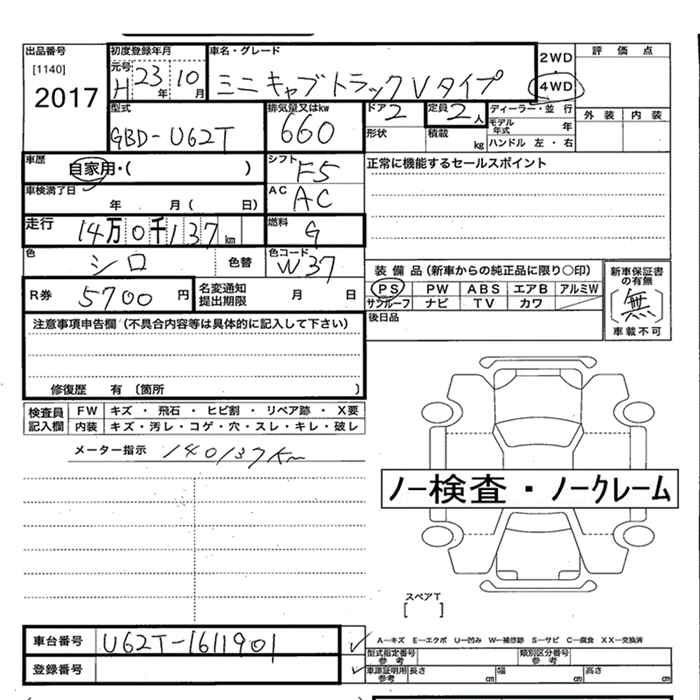 出品番号 初度登録年月 車名・グレード 2WD 評価点
[1140] 元号 H 23年 10月 ミニキャブトラック Vタイプ 4WD
2017
型式 排気量又はkw ドア 2 定員 2人 ディーラー・並行 外装 内装
GBD-U62T 660 モデル年式 年
形状 積載 kg ハンドル 左・右
車歴 自家用・( ) シフト F5 正常に機能するセールスポイント
車検満了日 年 月( 日) AC AC
走行 14万0千137km 燃料 G
色 シロ 色替 色コード W37 装備品(新車からの純正品に限り○印) 新車保証書の有無
R券 5700円 名変通知提出期限 月 日 PS PW ABS エアB アルミW [無]
サンルーフ ナビ TV カワ 車載不可
注意事項申告欄(不具合内容等は具体的に記入して下さい) 後日品
修復歴 有 (箇所 )
検査員記入欄 FW キズ・飛石・ヒビ割・リペア跡・X要
内装 キズ・汚レ・コゲ・穴・スレ・キレ・破レ
メーター指示 140137Km
ノー検査・ノークレーム
スペアT
[ ]
車台番号 U62T-1611901 A−キズ E−エクボ U−凹み W−補修跡 S−サビ C−腐食 XX−交換済
型式指定番号 参考 類別区分番号 参考
登録番号 車庫証明用 参考 長さ cm 幅 cm 高さ cm